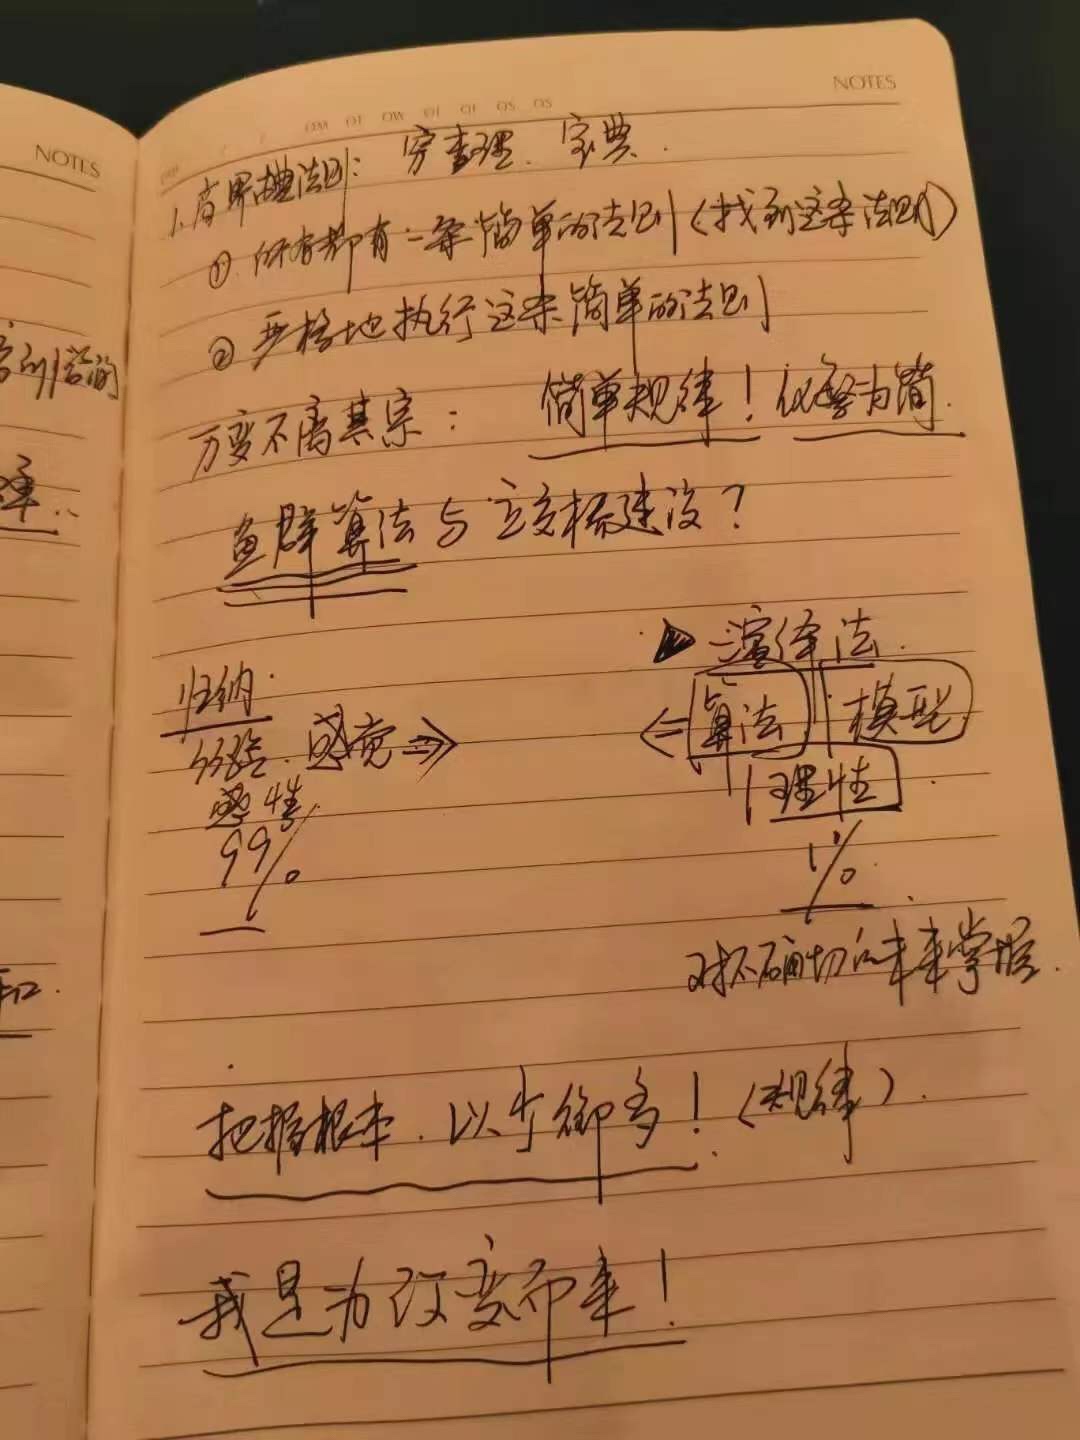 NOTES
NOTES
穷查理、宝典.
① 所有都有一条简单的法则(找到这条法则)
② 严格地执行这条简单的法则
万变不离其宗: 简单规律! 为简.
鱼群算法与立交桥建设?
归纳.
▶ 演绎法.
经验、感觉 ⇒
⇐ 算法 模型
感性
理性
99%
1%
对不确切的未来掌握.
把握根本、以少御多! (规律).
我是为改变而来!